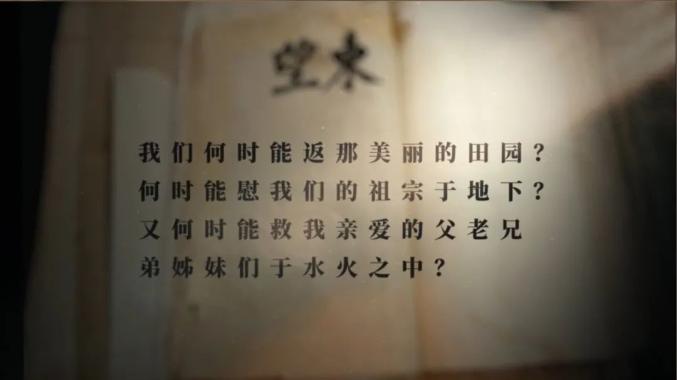 我们何时能返那美丽的田园？
何时能慰我们的祖宗于地下？
又何时能救我亲爱的父老兄
弟姊妹们于水火之中？